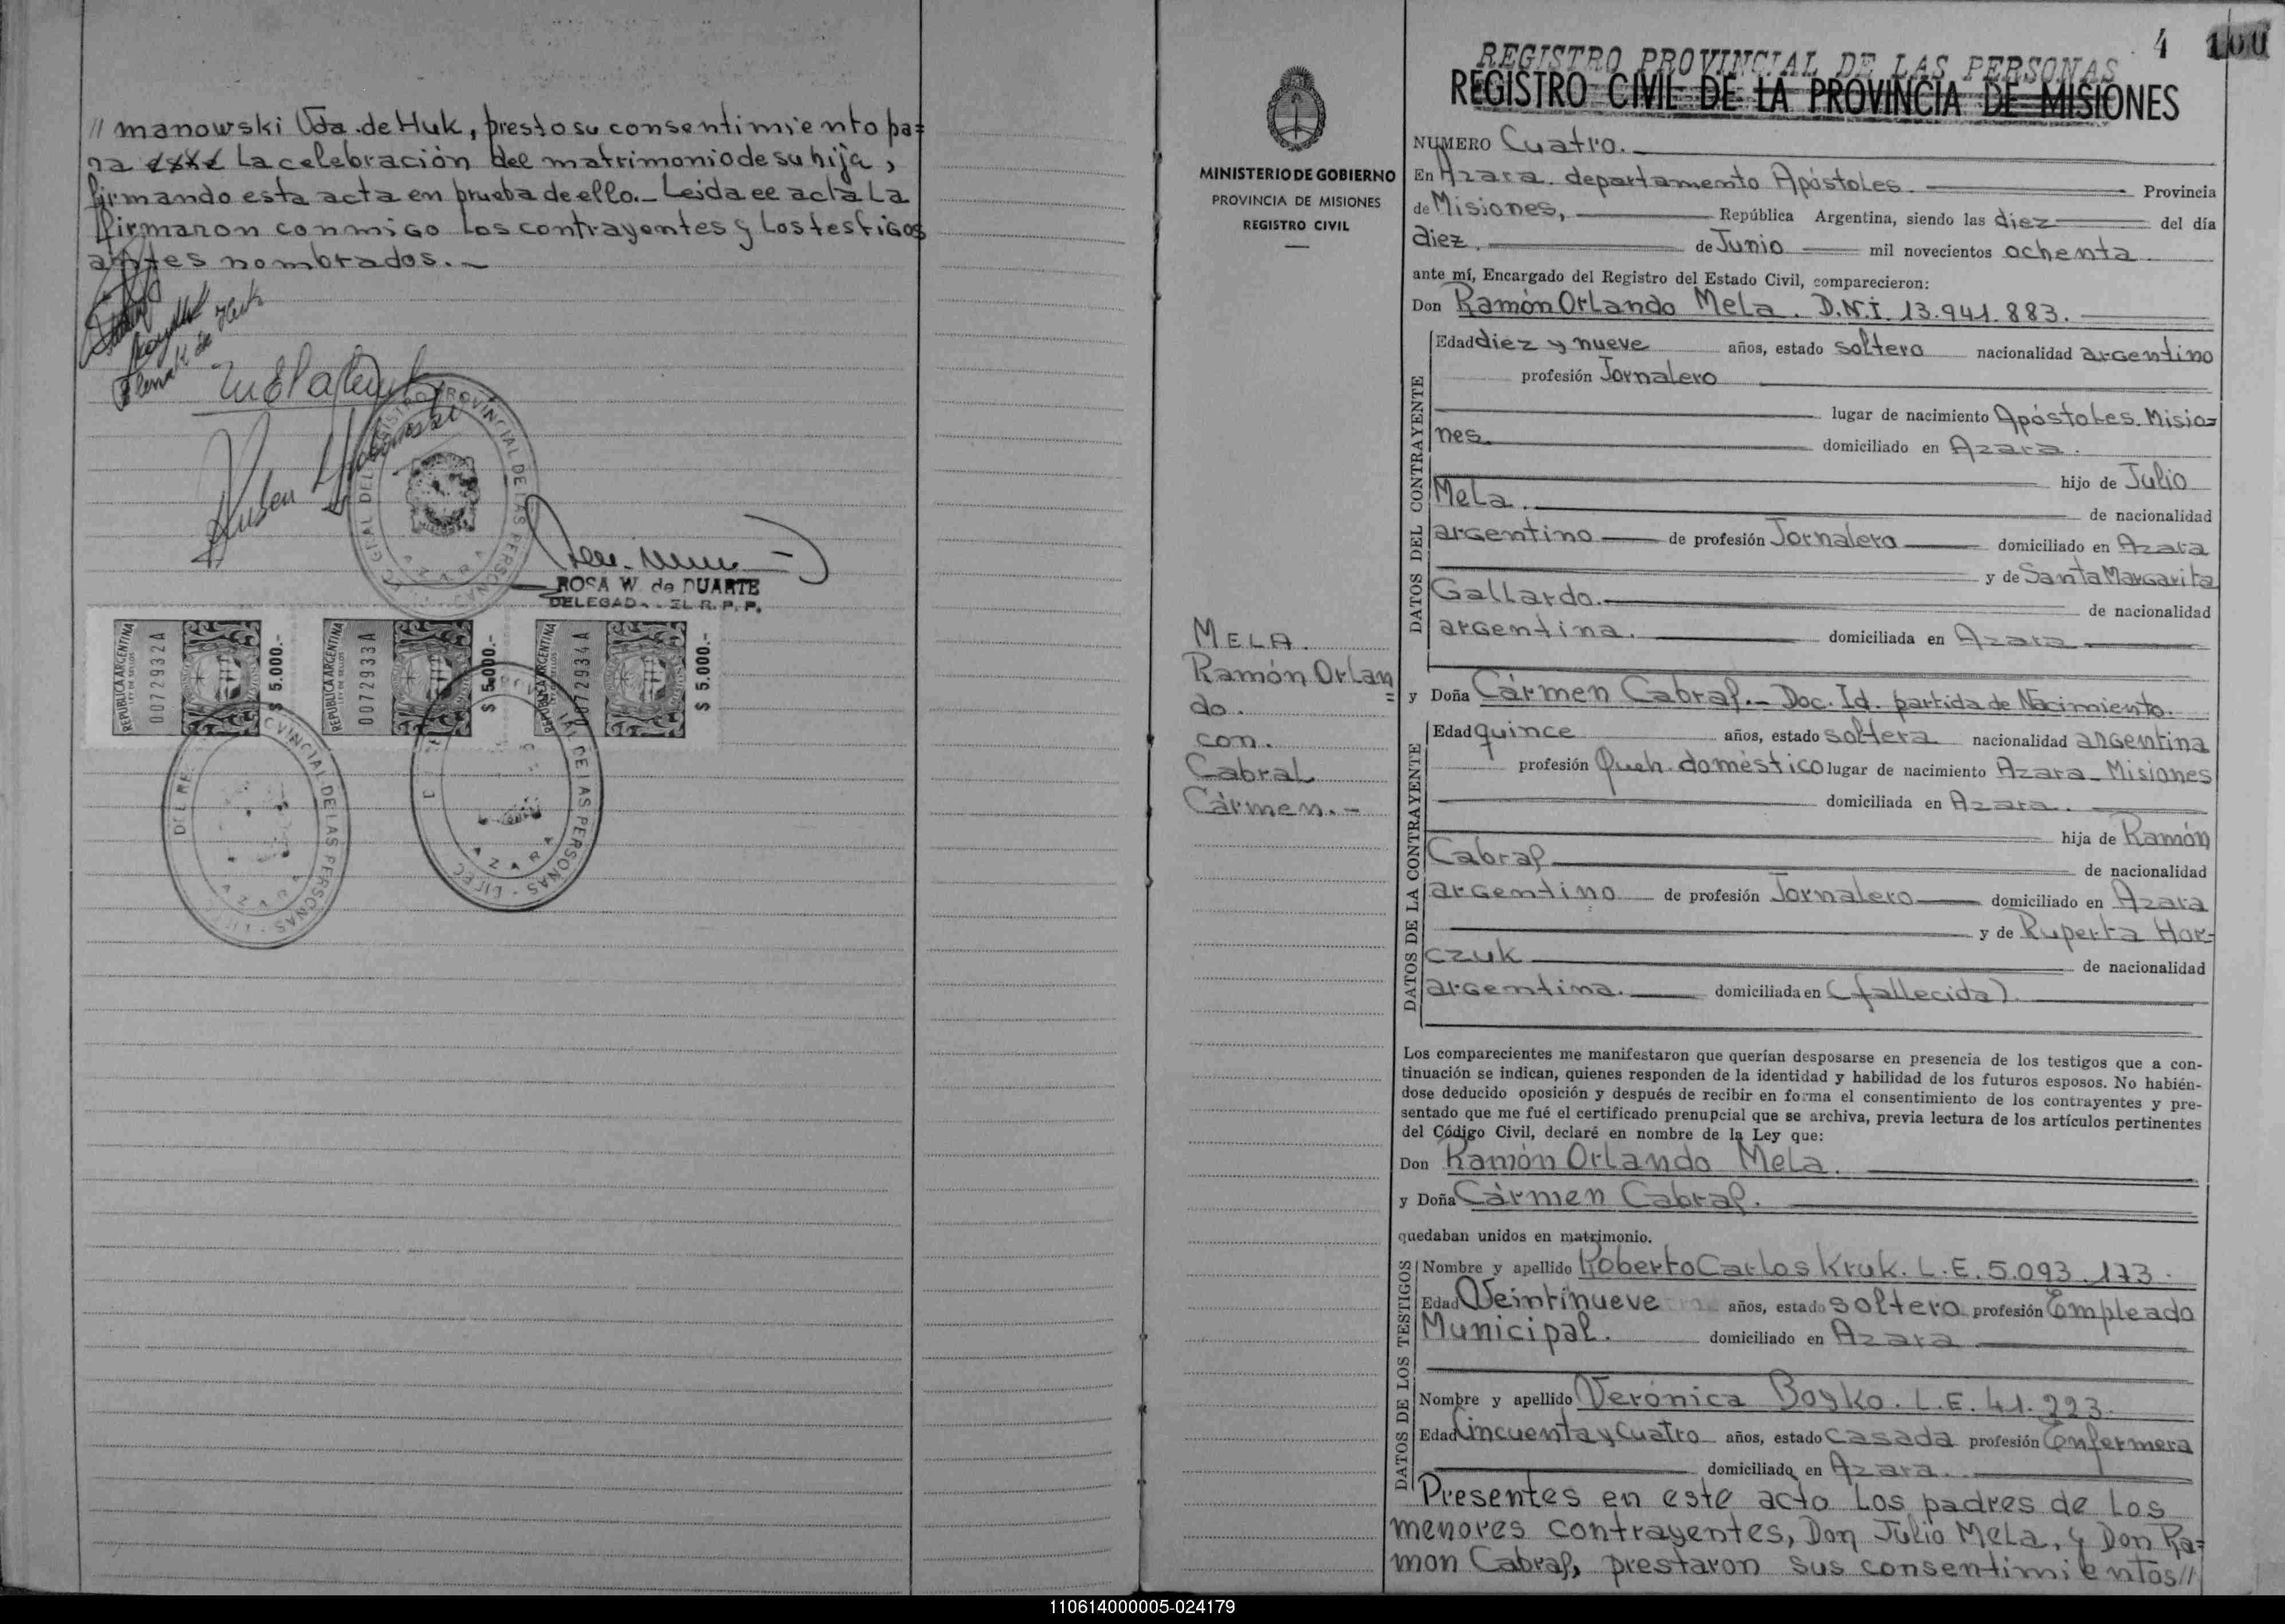 // manowski Vda. de Huk, presto su consentimiento pa=
ra este La celebración del matrimonio de su hija,
firmando esta acta en prueba de ello._ Leida ee acta La
firmaron conmigo los contrayentes y los testigos
antes nombrados._
Ruben
REGISTRO PROVINCIAL DE LAS PERSONAS
AZARA
ROSA W. de DUARTE
DELEGAD EL R. P. P.
REPUBLICA ARGENTINA
LEY DE SELLOS
00729932A
$ 5.000.-
REPUBLICA ARGENTINA
LEY DE SELLOS
00729933A
$ 5.000.-
REPUBLICA ARGENTINA
00729934A
$ 5.000.-
VINCIAL DE LAS PERSONAS
AZARA
DE LAS PERSONAS
AZARA
4
100
MINISTERIO DE GOBIERNO
PROVINCIA DE MISIONES
REGISTRO CIVIL
MELA.
Ramón Orlan=
do.
con.
Cabral
Cármen.-
REGISTRO PROVINCIAL DE LAS PERSONAS
REGISTRO CIVIL DE LA PROVINCIA DE MISIONES
NUMERO Cuatro.
En Azara. departamento Apóstoles. Provincia
de Misiones, República Argentina, siendo las diez del día
diez. de Junio mil novecientos ochenta
ante mí, Encargado del Registro del Estado Civil, comparecieron:
Don Ramón Orlando Mela. D.N.I. 13.941.883.
DATOS DEL CONTRAYENTE
Edad diez y nueve años, estado soltero nacionalidad argentino
profesión Jornalero
lugar de nacimiento Apóstoles. Misio=
nes. domiciliado en Azara.
hijo de Julio
Mela. de nacionalidad
argentino de profesión Jornalero domiciliado en Azara
y de Santa Margarita
Gallardo. de nacionalidad
argentina. domiciliada en Azara
y Doña Cármen Cabral.- Doc. Id. partida de Nacimiento.
DATOS DE LA CONTRAYENTE
Edad quince años, estado soltera nacionalidad argentina
profesión Queh. doméstico lugar de nacimiento Azara_ Misiones
domiciliada en Azara.
hija de Ramón
Cabral de nacionalidad
argentino de profesión Jornalero domiciliado en Azara
y de Ruperta Hor-
czuk de nacionalidad
argentina. domiciliada en (fallecida).
Los comparecientes me manifestaron que querían desposarse en presencia de los testigos que a con-
tinuación se indican, quienes responden de la identidad y habilidad de los futuros esposos. No habién-
dose deducido oposición y después de recibir en forma el consentimiento de los contrayentes y pre-
sentado que me fué el certificado prenupcial que se archiva, previa lectura de los artículos pertinentes
del Código Civil, declaré en nombre de la Ley que:
Don Ramón Orlando Mela.
y Doña Cármen Cabral.
quedaban unidos en matrimonio.
DATOS DE LOS TESTIGOS
Nombre y apellido Roberto Carlos Kruk. L.E. 5.093.173.
Edad Veintinueve años, estado soltero profesión Empleado
Municipal. domiciliado en Azara
Nombre y apellido Verónica Boyko. L.E. 41.223.
Edad Cincuenta y Cuatro años, estado casada profesión Enfermera
domiciliado en Azara.
Presentes en este acto Los padres de Los
menores contrayentes, Don Julio Mela, y Don Ra=
mon Cabral, prestaron sus consentimientos//
110614000005-024179